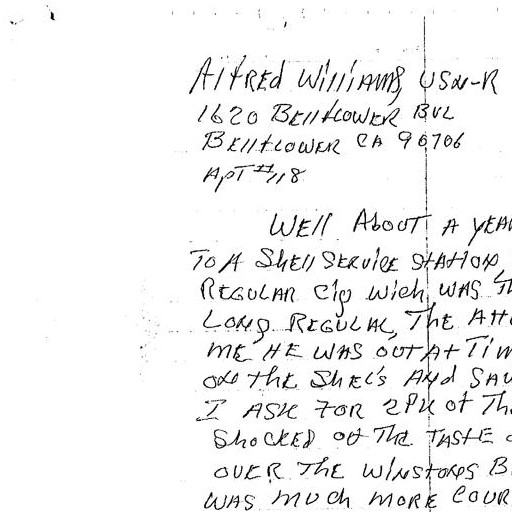 Alfred Williams, USN-R
1620 Bellflower BVL
Bellflower CA 90706
ApT #118
Well About A year
To A Shell Service Station,
Regular Cig wich was
Long Regular, The
me He was out At Tim
on the Shel's And Saw
I Ask For 2PK of Th
Shocked of The Taste
over The Winstons B
was much more Cour